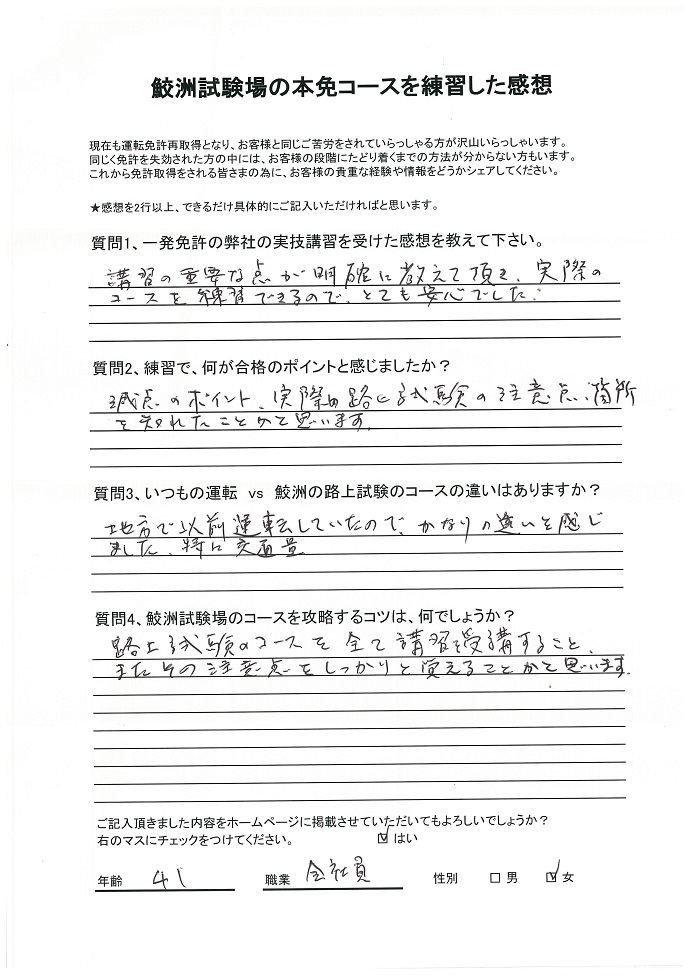 鮫洲試験場の本免コースを練習した感想
現在も運転免許再取得となり、お客様と同じご苦労をされていらっしゃる方が沢山いらっしゃいます。
同じく免許を失効された方の中には、お客様の段階にたどり着くまでの方法が分からない方もいます。
これから免許取得をされる皆さまの為に、お客様の貴重な経験や情報をどうかシェアしてください。
★感想を2行以上、できるだけ具体的にご記入いただければと思います。
質問1、一発免許の弊社の実技講習を受けた感想を教えて下さい。
講習の重要な点が明確に教えて頂き、実際の
コースを練習できるので、とても安心でした。
質問2、練習で、何が合格のポイントと感じましたか?
減点のポイント、実際の路上試験の注意点、箇所
を知れたことかと思います。
質問3、いつもの運転 vs 鮫洲の路上試験のコースの違いはありますか?
地方で以前運転していたので、かなりの違いを感じ
ました、特に交通量
質問4、鮫洲試験場のコースを攻略するコツは、何でしょうか?
路上試験のコースを全て講習を受講すること、
またその注意点をしっかりと覚えることかと思います。
ご記入頂きました内容をホームページに掲載させていただいてもよろしいでしょうか?
右のマスにチェックをつけてください。 ☑ はい
年齢 41 職業 会社員 性別 □ 男 ☑ 女